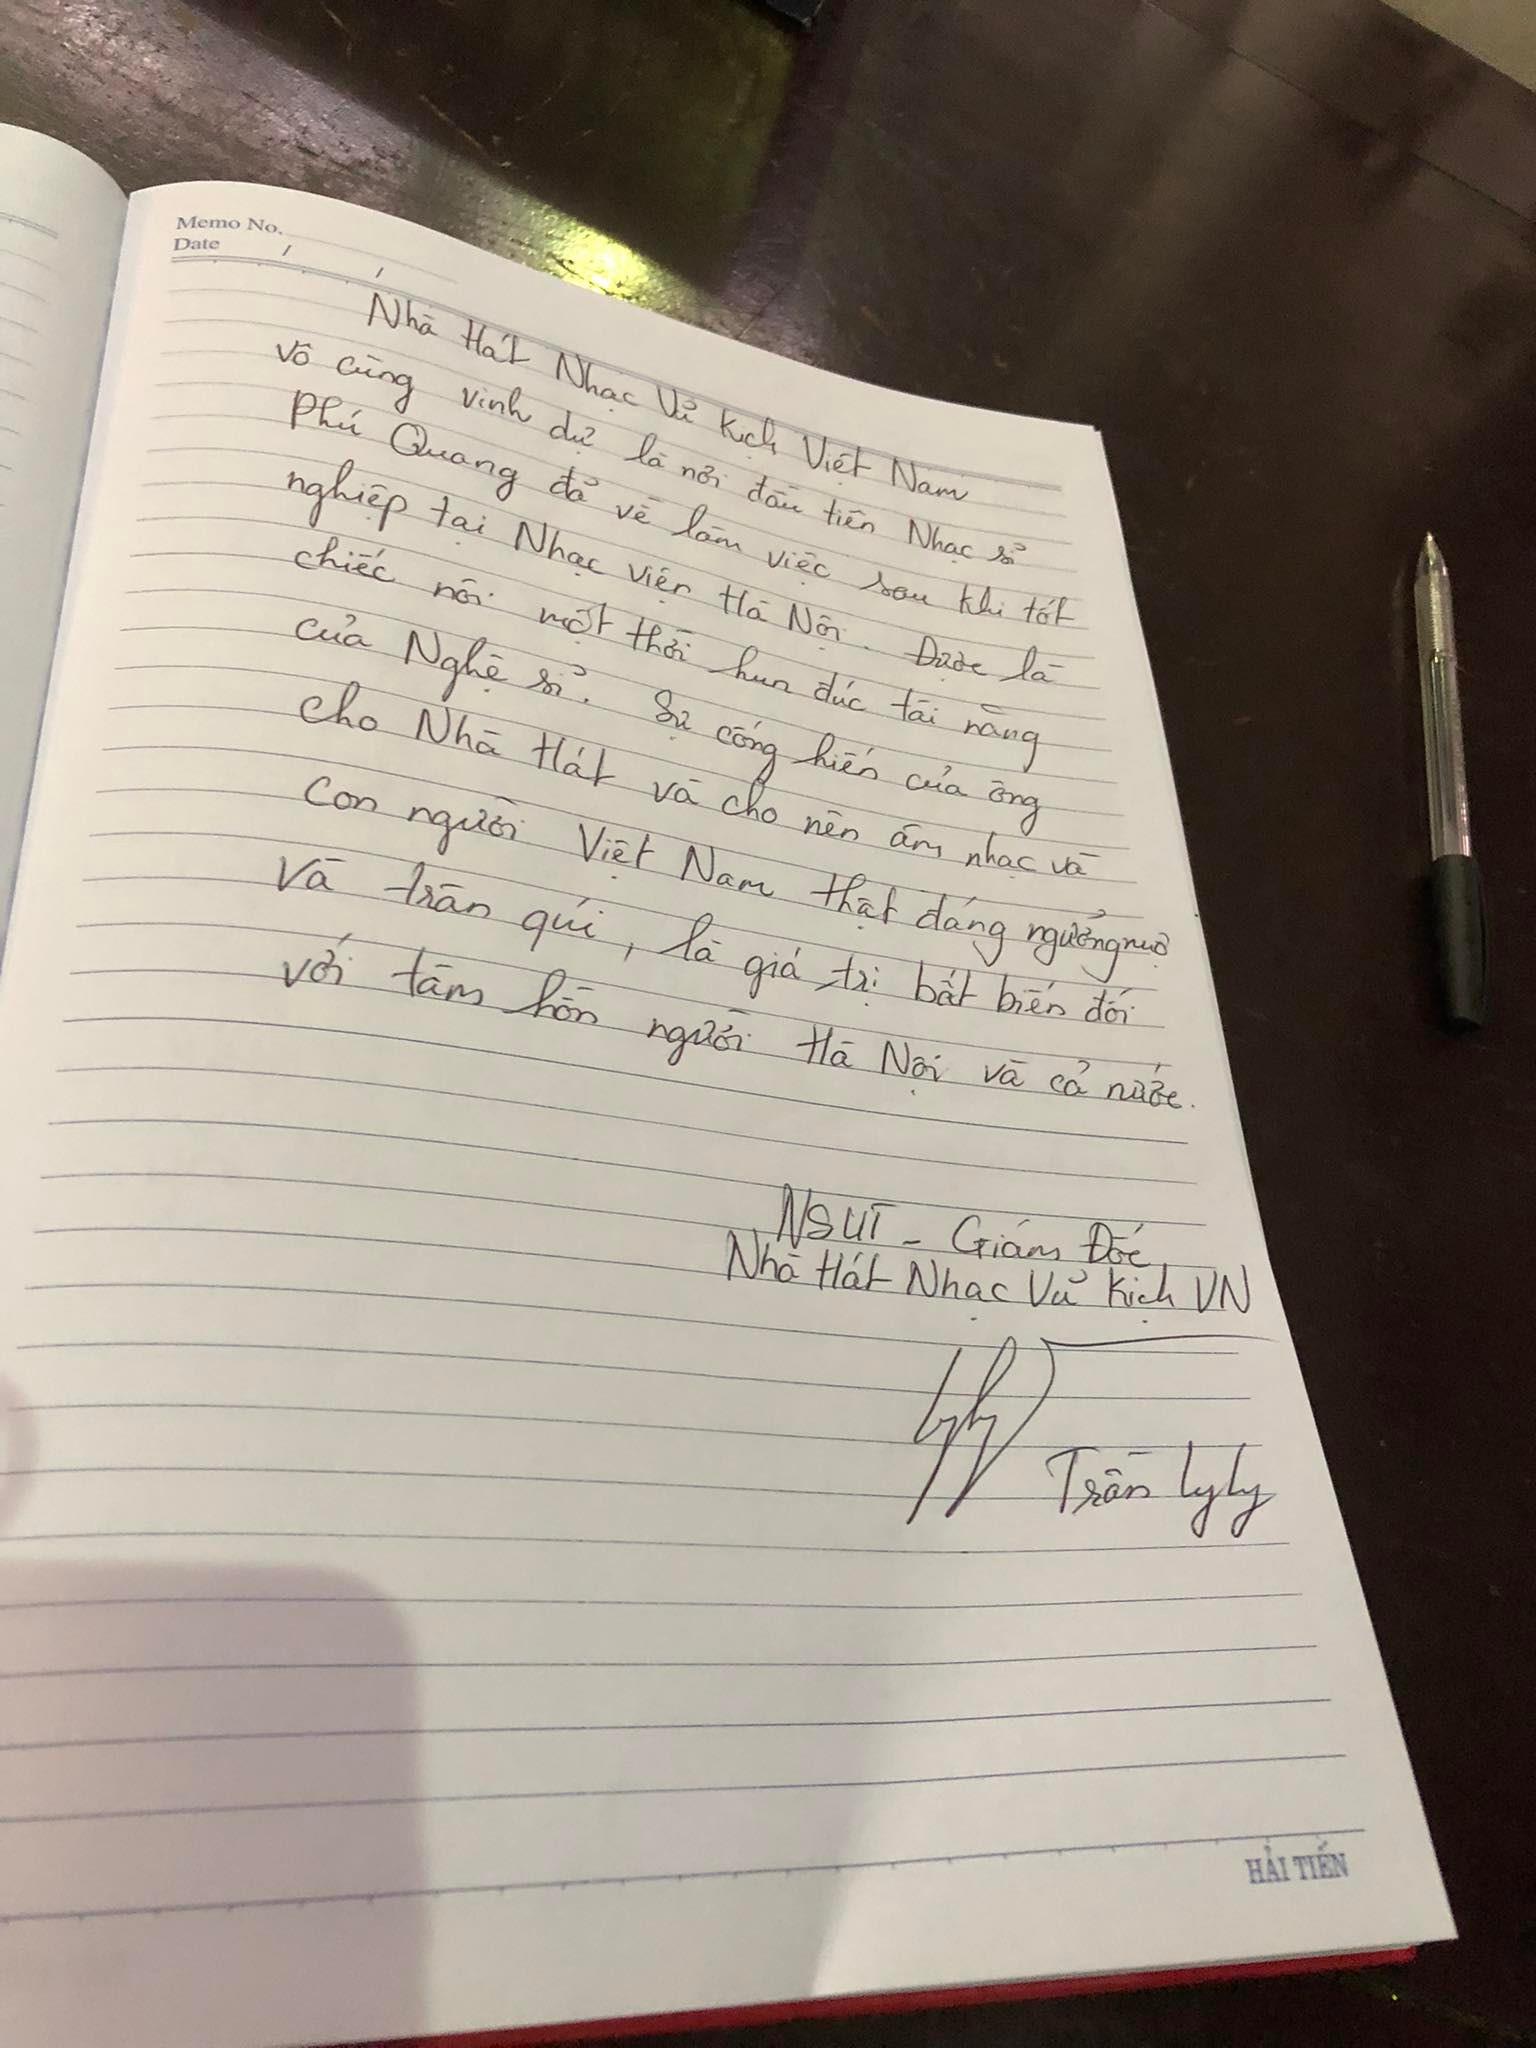 Memo No.
Date / /
Nhà Hát Nhạc Vũ Kịch Việt Nam
vô cùng vinh dự là nơi đầu tiên Nhạc sĩ
Phú Quang đã về làm việc sau khi tốt
nghiệp tại Nhạc viện Hà Nội. Được là
chiếc nôi một thời hun đúc tài năng
của Nghệ sĩ. Sự cống hiến của ông
cho Nhà Hát và cho nền âm nhạc và
con người Việt Nam thật đáng ngưỡng mộ
và trân quí, là giá trị bất biến đối
với tâm hồn người Hà Nội và cả nước.
NSƯT - Giám Đốc
Nhà Hát Nhạc Vũ Kịch VN
Lyly
Trần Lyly
HẢI TIẾN